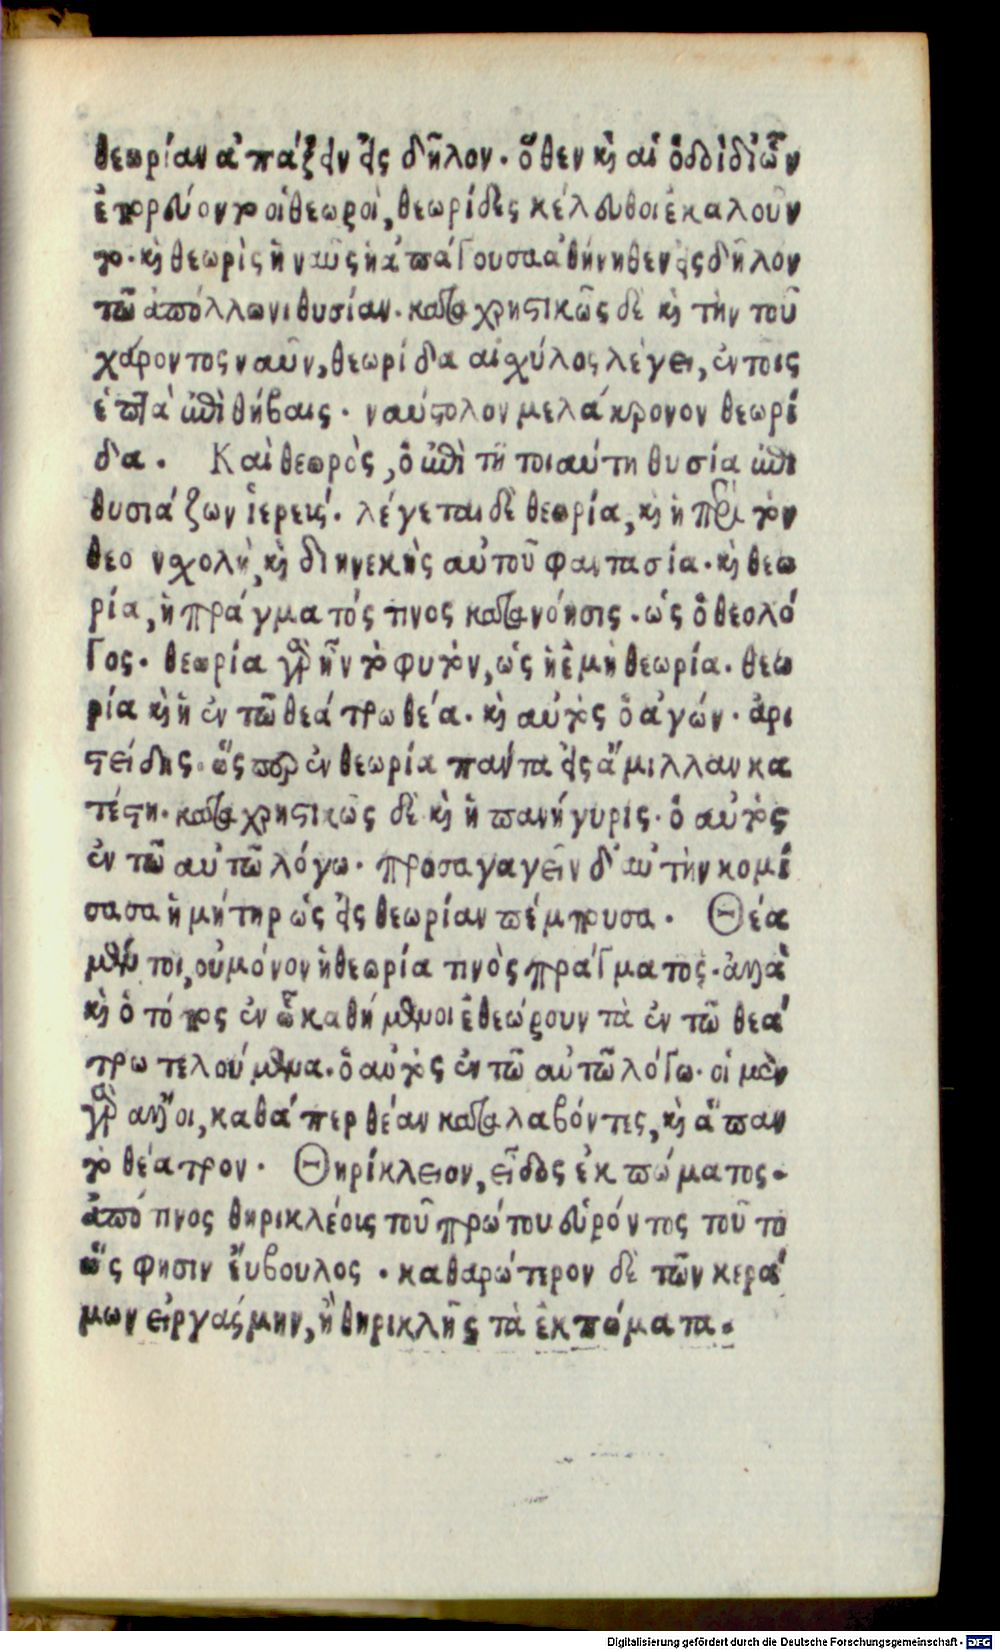 θεωρίαν ἀπάξειν εἰς δῆλον. ὅθεν καὶ αἱ ὁδοὶ δι' ὧν
ἐπορεύοντο οἱ θεωροὶ, θεωρίδες κέλευθοι ἐκαλοῦν
το. καὶ θεωρὶς ἡ ναῦς ἡ ἀπάγουσα ἀθήνηθεν εἰς δῆλον
τῶ ἀπόλλωνι θυσίαν. καταχρηστικῶς δὲ καὶ τὴν τοῦ
χάροντος ναῦν, θεωρίδα αἰχύλος λέγει, ἐν τοῖς
ἑπτὰ ἐπὶ θήβαις. ναύστολον μελάκροκον θεωρί
δα. Καὶ θεωρὸς, ὁ ἐπὶ τῆ τοιαύτη θυσία ἐπι
θυσιάζων ἱερεύς. λέγεται δὲ θεωρία, καὶ ἡ περὶ τὸν
θεο νχολὴ, καὶ διηνεκὴς αὐτοῦ φαντασία. καὶ θεω
ρία, ἡ πράγματός τινος κατανόησις. ὡς ὁ θεολό
γος. θεωρία γὰρ ἦν τὸ φυτὸν, ὡς ἡ ἐμὴ θεωρία. θεω
ρία καὶ ἡ ἐν τῶ θεάτρω θέα. καὶ αὐτὸς ὁ ἀγών. ἀρι
στείδης. ὥσπερ ἐν θεωρία πάντα εἰς ἅμιλλαν κα
τέστη. καταχρηστικῶς δὲ καὶ ἡ πανήγυρις. ὁ αὐτὸς
ἐν τῶ αὐτῶ λόγω. προσαγαγεῖν δ' αὐτὴν κομί
σασα ἡ μήτηρ ὡς εἰς θεωρίαν πέμπουσα. Θέα
μέν τοι, οὐ μόνον ἡ θεωρία τινὸς πράγματος. ἀλλὰ
καὶ ὁ τόπος ἐν ὧ καθήμενοι ἐθεώρουν τὰ ἐν τῶ θεά
τρω τελούμενα. ὁ αὐτὸς ἐν τῶ αὐτῶ λόγω. οἱ μὲν
γὰρ ἄλλοι, καθάπερ θέαν καταλαβόντες, καὶ ἅπαν
τὸ θέατρον. Θηρίκλειον, εἶδος ἐκπώματος.
ἀπό τινος θηρικλέοις τοῦ πρώτου εὑρόντος τοῦτο
ὥς φησιν ἔυβουλος. καθαρώτερον δὲ τῶν κερά
μων εἰργαςμην, ἢ θηρικλῆς τὰ ἐκπώματα.
Digitalisierung gefördert durch die Deutsche Forschungsgemeinschaft - DFG